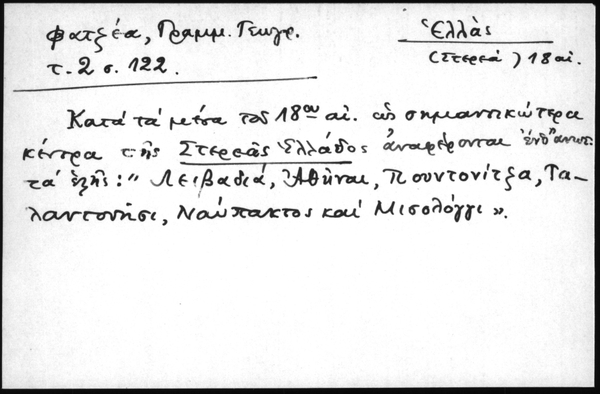 Φατζέα, Γραμμ. Γεωγρ.
τ. 2 σ. 122.
Ἑλλὰς
(Στερεά) 18 αἰ.
Κατά τά μέσα τοῦ 18ου αἰ. ὡς σημαντικώτερα
κέντρα τῆς Στερεᾶς Ἑλλάδος ἀναφέρονται
τά ἑξῆς: "Λειβαδιά, Ἀθῆναι, Πουντονίτζα, Τα-
λαντονήσι, Ναύπακτος καί Μισολόγγι».